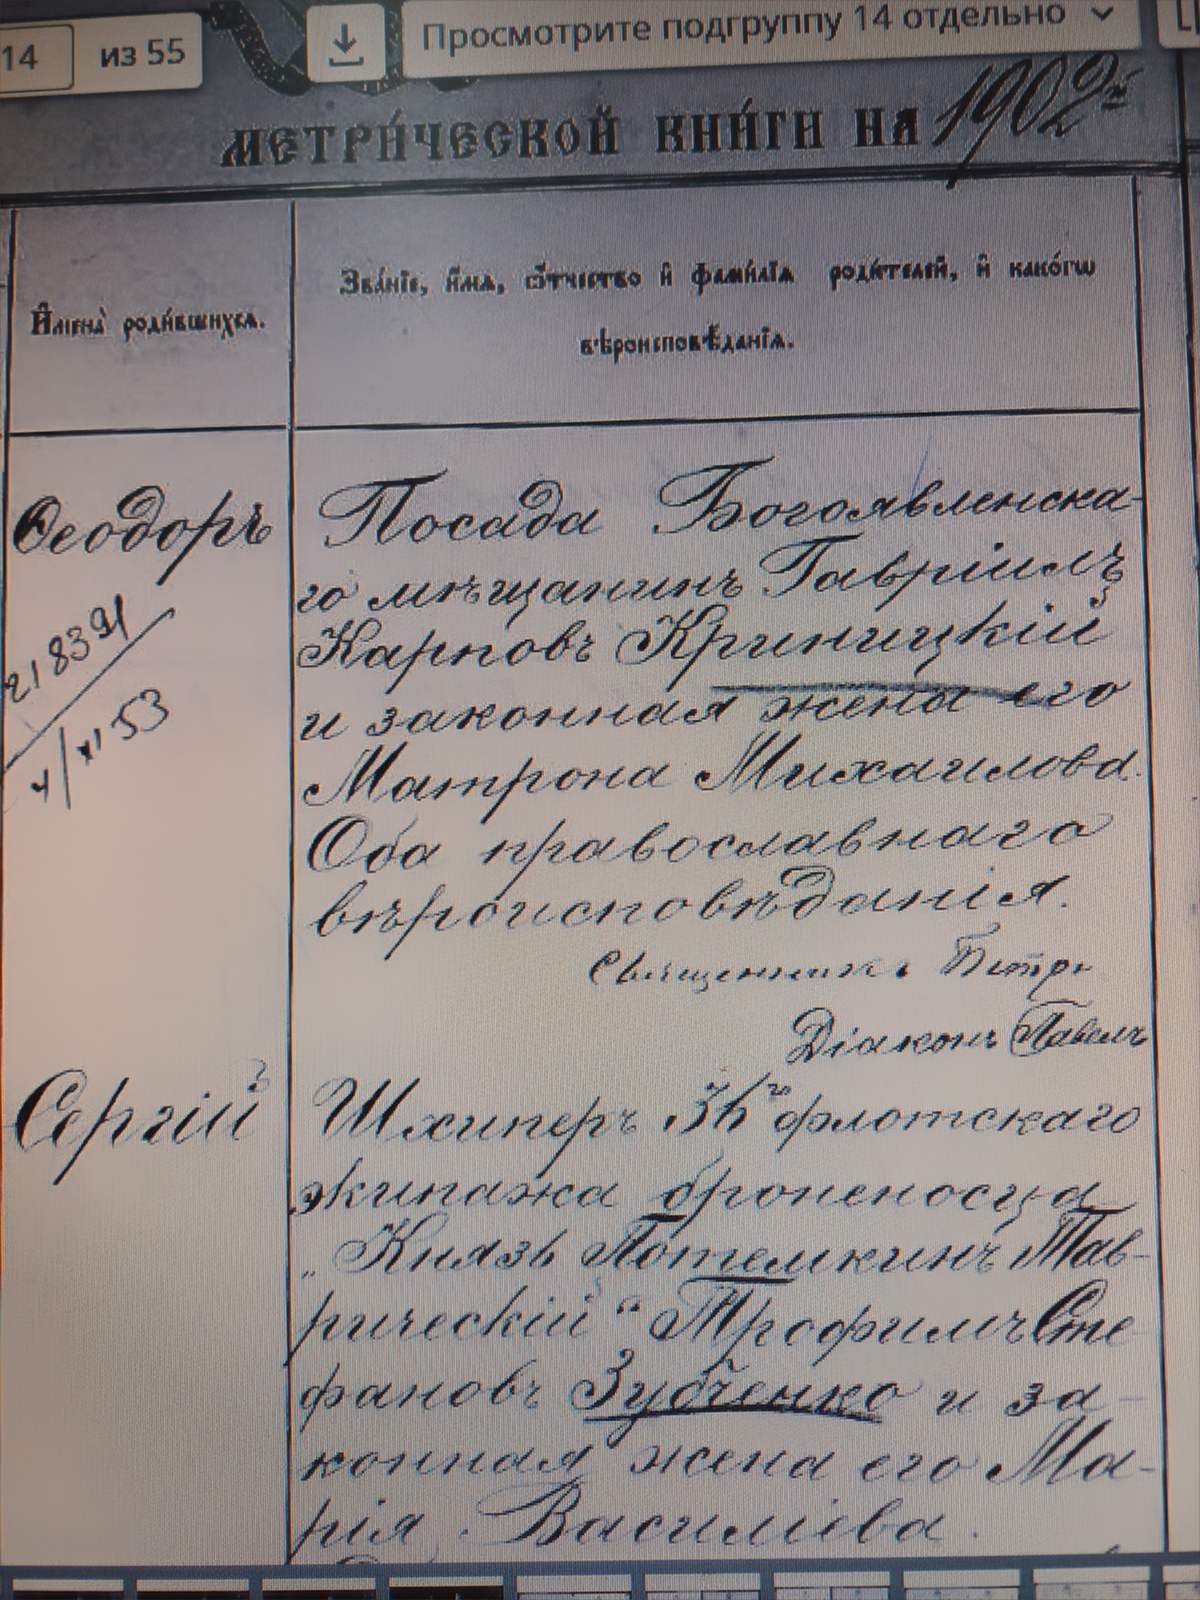 14 из 55 Просмотрите подгруппу 14 отдельно
МЕТРИ́ЧЕСКОЙ КНИ́ГИ НА 1902й
И҆мена̀ роди́вшихсѧ.
Зва́нїе, и҆́мѧ, ѻ҆́тчество и҆ фами́лїѧ роди́телей, и҆ како́гѡ
вѣроисповѣ́данїѧ.
Ѳеодоръ
218391
4/XI 53
Посада Богоявленска-
го мѣщанинъ Гавріилъ
Карповъ Криницкій
и законная жена его
Матрона Михаилова.
Оба православнаго
вѣроисповѣданія.
Священникъ Петръ
Діаконъ Павелъ
Сергій
Шхиперъ 36го флотскаго
экипажа броненосца
„Князь Потемкинъ Тав-
рическій“ Трофимъ Сте
фановъ Зубченко и за-
конная жена его Ма-
рія Василіева.